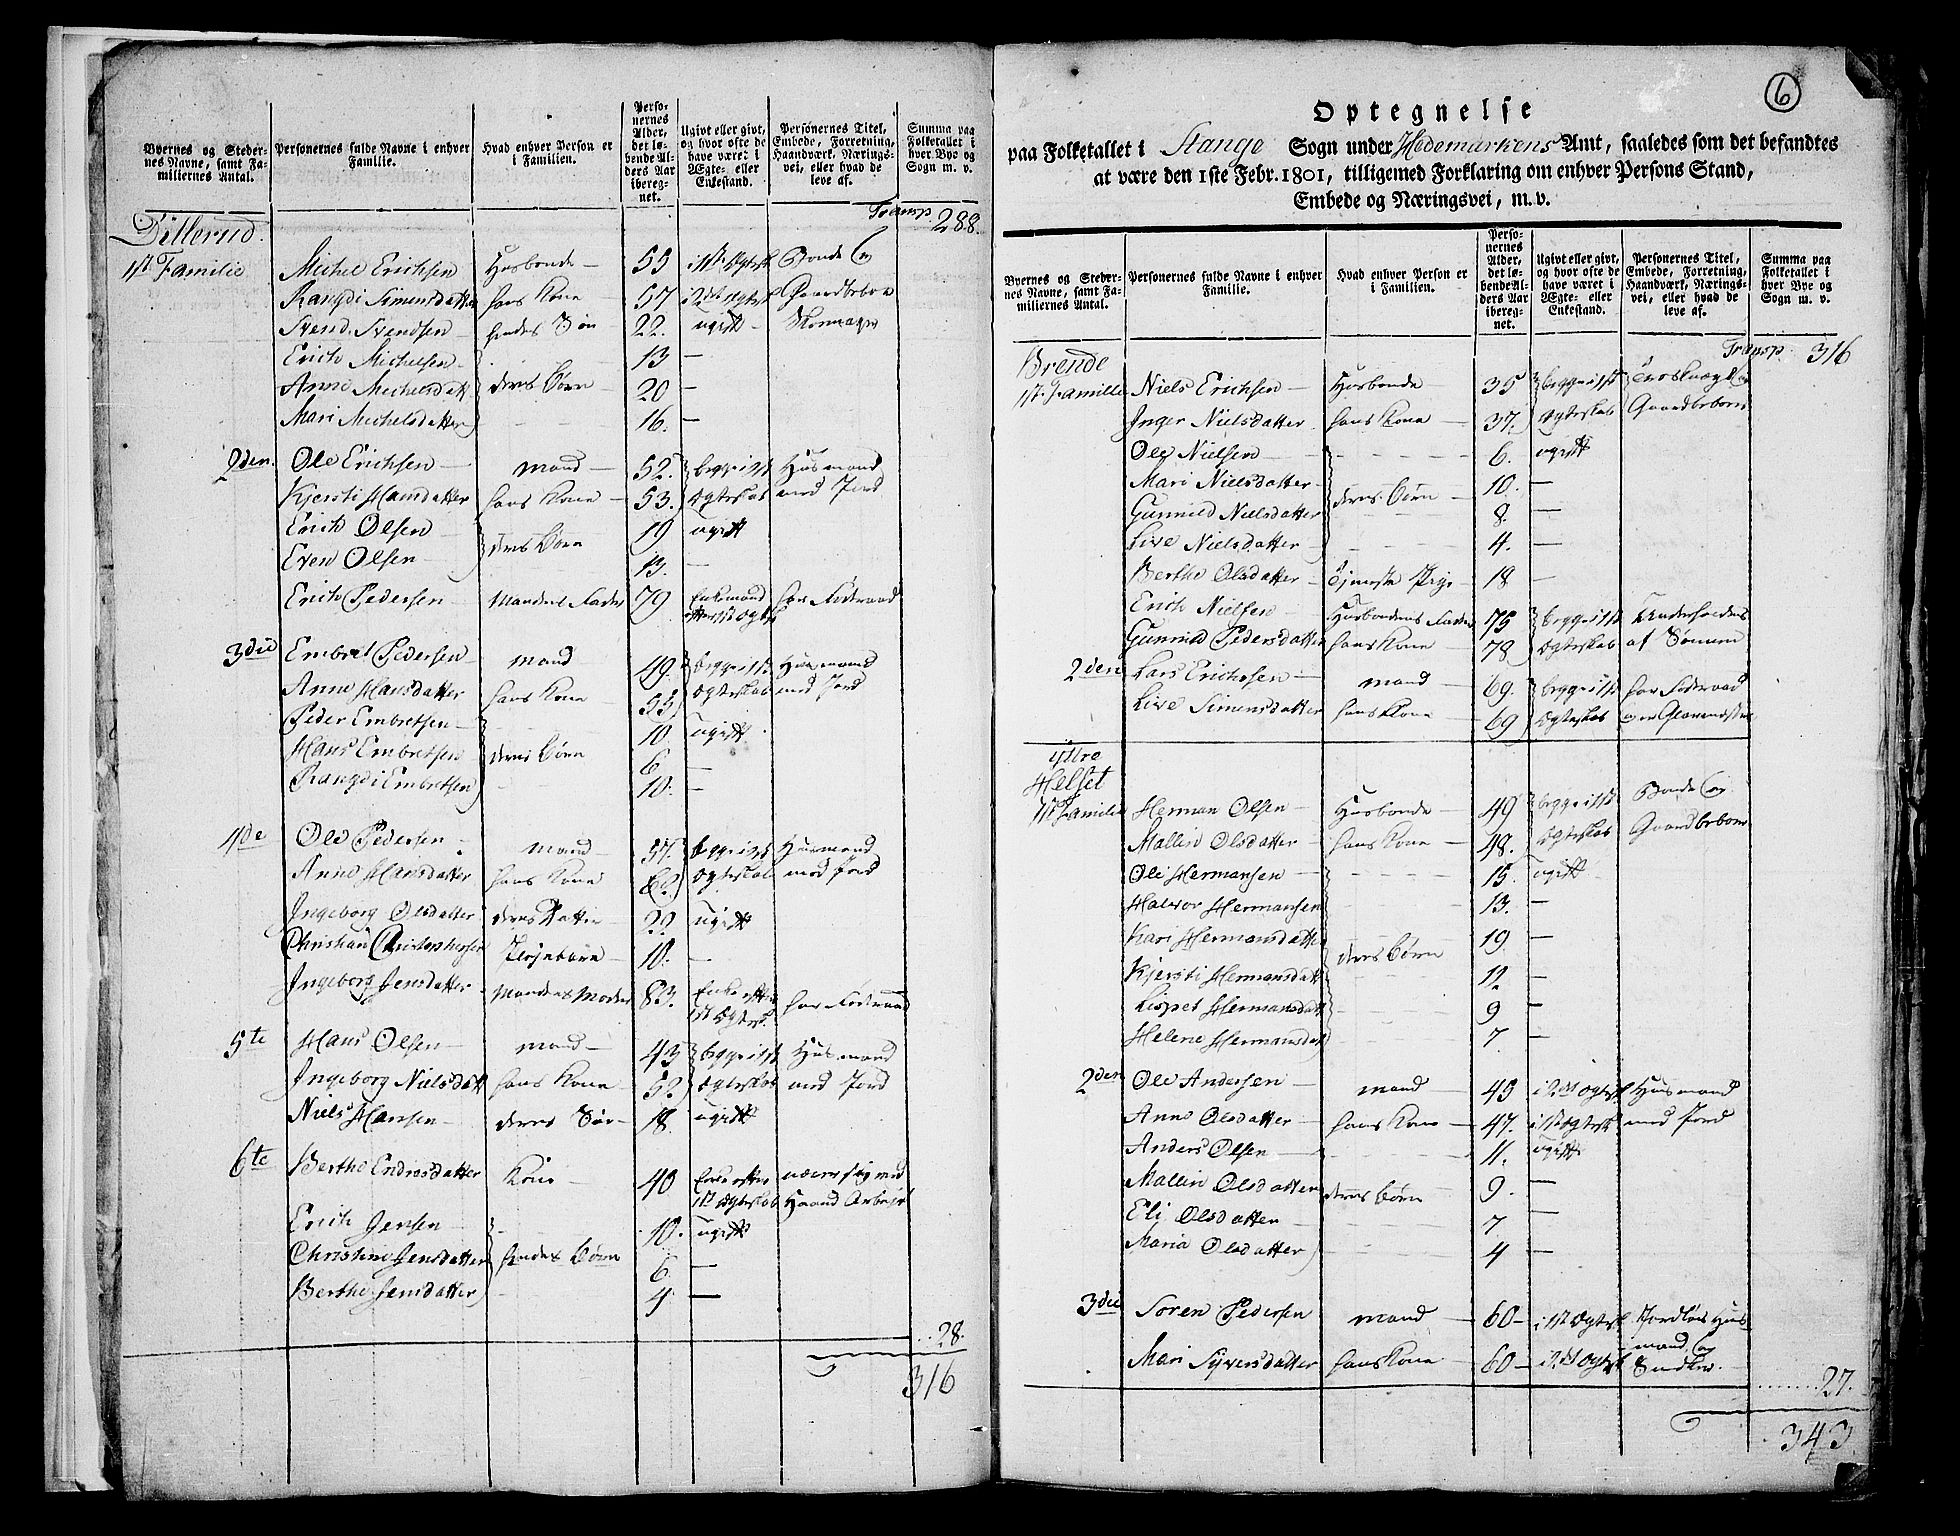 Byernes og Stedernes Navne, samt Familiernes Antal.
Personernes fulde Navne i enhver Familie.
Hvad enhver Person er i Familien.
Personernes Alder, det løbende Alders Aar iberegnet.
Ugivt eller givt, og hvor ofte de have været i Ægte- eller Enkestand.
Personernes Titel, Embede, Forretning, Haandværk, Næringsvei, eller hvad de leve af.
Summa paa Folketallet i hver Bye og Sogn m. v.
Transp. 288.
Dillerud.
1ste Familie Michel Erichsen Husbonde 55 i 1ste Ægtesk Bonde og
Rangdi Simensdatter hans Kone 57 i 2det Ægtesk Gaardbeboer
Svend Svendsen hendes Søn 22. ugivt
Erich Michelsen 13 —
Anne Michelsdatt deres Børn 20 —
Mari Michelsdatter 16. —
2den Ole Erichsen mand 52. begge i 1ste Huusmand
Kjersti Hansdatter hans Kone 53. Ægteskab med Jord
Erich Olsen deres Børn 19 ugivt
Even Olsen 13. —
Erich Pedersen Mandens Fader 79 Enkemand har Føderaad
efter 1ste Ægtesk
3die Embret Pedersen mand 49. begge i 1ste Huusmand
Anne Hansdatter hans Kone 53 Ægteskab med Jord
Peder Embretsen 10 ugivt
Hans Embretsen deres Børn 6 —
Rangdi Embretsen 10. —
4de Ole Pedersen mand 57. begge i 1ste Huusmand
Anne Hansdatter hans Kone Ægteskab med Jord
Ingeborg Olsdatter deres Datter 22 ugivt
Christian Christophersen Plejebørn 10. —
Ingeborg Jensdatter Mandens Moder 83. Enke efter har Føderaad
1st Ægtesk.
5te Hans Olsen mand 43 begge i 1ste Huusmand
Ingeborg Nielsdatt hans Kone 52 Ægteskab med Jord
Niels Hansen deres Søn 18. ugivt
6te Berthe Endresdatter Kone 40 Enke efter nærer sig med
1st Ægteskab Haand Arbejde
Erich Jensen 10. ugivt
Christine Jensdatter hendes Børn 6 —
Berthe Jensdatter 4 —
28.
316
6
Optegnelse
paa Folketallet i Stange Sogn under Hedemarkens Amt, saaledes som det befandtes
at være den 1ste Febr. 1801, tilligemed Forklaring om enhver Persons Stand,
Embede og Næringsvei, m. v.
Byernes og Stedernes Navne, samt Familiernes Antal.
Personernes fulde Navne i enhver Familie.
Hvad enhver Person er i Familien.
Personernes Alder, det løbende Alders Aar iberegnet.
Ugivt eller givt, og hvor ofte de have været i Ægte- eller Enkestand.
Personernes Titel, Embede, Forretning, Haandværk, Næringsvei, eller hvad de leve af.
Summa paa Folketallet i hver Bye og Sogn m. v.
Transp. 316
Brende
1st Familie Niels Erichsen Husbonde 35 begge i 1ste
Inger Nielsdatter hans Kone 37. Ægteskab Gaardbeboer
Ole Nielsen 6. ugivt
Mari Nielsdatter 10. —
Gunnild Nielsdatter deres Børn 8. —
Live Nielsdatter 4. —
Berthe Olsdatter Tjeneste Pige 18 —
Erich Nielsen Husbondens Fader 75 begge i 1ste Underholdes
Gunnild Pedersdatter hans Kone 78 Ægteskab af Sønnen
2den Lars Erichsen mand 69. begge i 1ste har Føderaad
Live Simensdatter hans Kone 69 Ægteskab
Yttre
Helset
1st Familie Herman Olsen Husbonde 49 begge i 1ste Bonde og
Mallin Olsdatter hans Kone 48. Ægteskab Gaardbeboer
Ole Hermansen 15. ugivt
Halvor Hermansen 13. —
Kari Hermansdatt 19 —
Kjersti Hermansdatt deres Børn 12 —
Lispet Hermansdatt 9 —
Helene Hermansdat 7 —
2den Ole Andersen mand 45 i 2det Ægtesk Huusmand
Anne Olsdatter hans Kone 47. i 1st Ægtesk med Jord
Anders Olsen 11. ugivt
Mallin Olsdatter deres Børn 9. —
Eli Olsdatter 7 —
Maria Olsdatter 4 —
3die Soren Pedersen mand 60 — i 1st Ægtesk Jordløs Huus
mand og
Mari Syversdatter hans Kone 60 — i 2det Ægtesk Snedker
27.
343